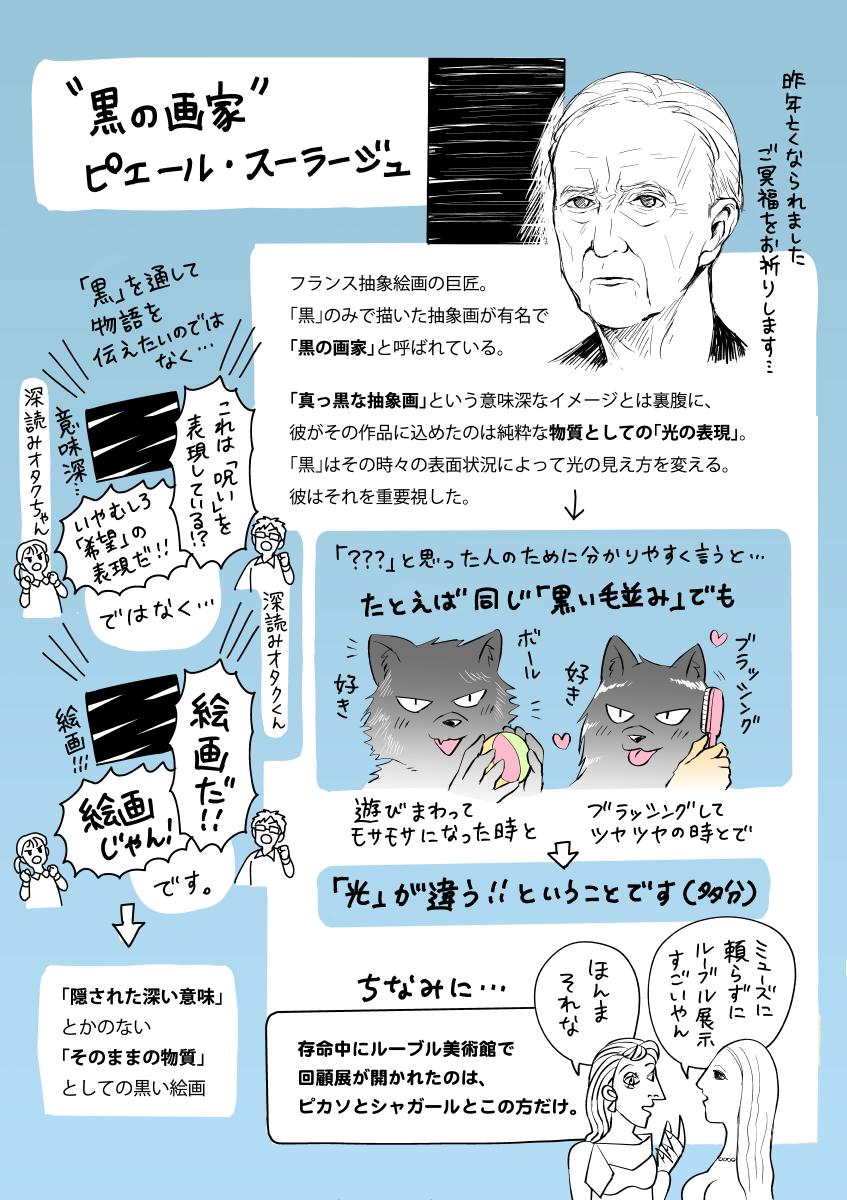 "黒の画家"
ピエール・スーラージュ
昨年亡くなられました
ご冥福をお祈りします…
フランス抽象絵画の巨匠。
「黒」のみで描いた抽象画が有名で
「黒の画家」と呼ばれている。
「真っ黒な抽象画」という意味深なイメージとは裏腹に、
彼がその作品に込めたのは純粋な物質としての「光の表現」。
「黒」はその時々の表面状況によって光の見え方を変える。
彼はそれを重要視した。
「黒」を通して
物語を
伝えたいのでは
なく…
深読みオタクちゃん
意味深…
これは「呪い」を
表現している!?
いやむしろ
「希望」の
表現だ!!
ではなく…
深読みオタクくん
絵画!!!
絵画だ!!
絵画
じゃん!
です。
「隠された深い意味」
とかのない
「そのままの物質」
としての黒い絵画
「???」と思った人のために分かりやすく言うと…
たとえば同じ「黒い毛並み」でも
ボール
好き
ブラッシング
好き
遊びまわって
モサモサになった時と
ブラッシングして
ツヤツヤの時とで
「光」が違う!!ということです(多分)
ちなみに…
存命中にルーブル美術館で
回顧展が開かれたのは、
ピカソとシャガールとこの方だけ。
ミューズに
頼らずに
ルーブル展示
すごいやん
ほんま
それな